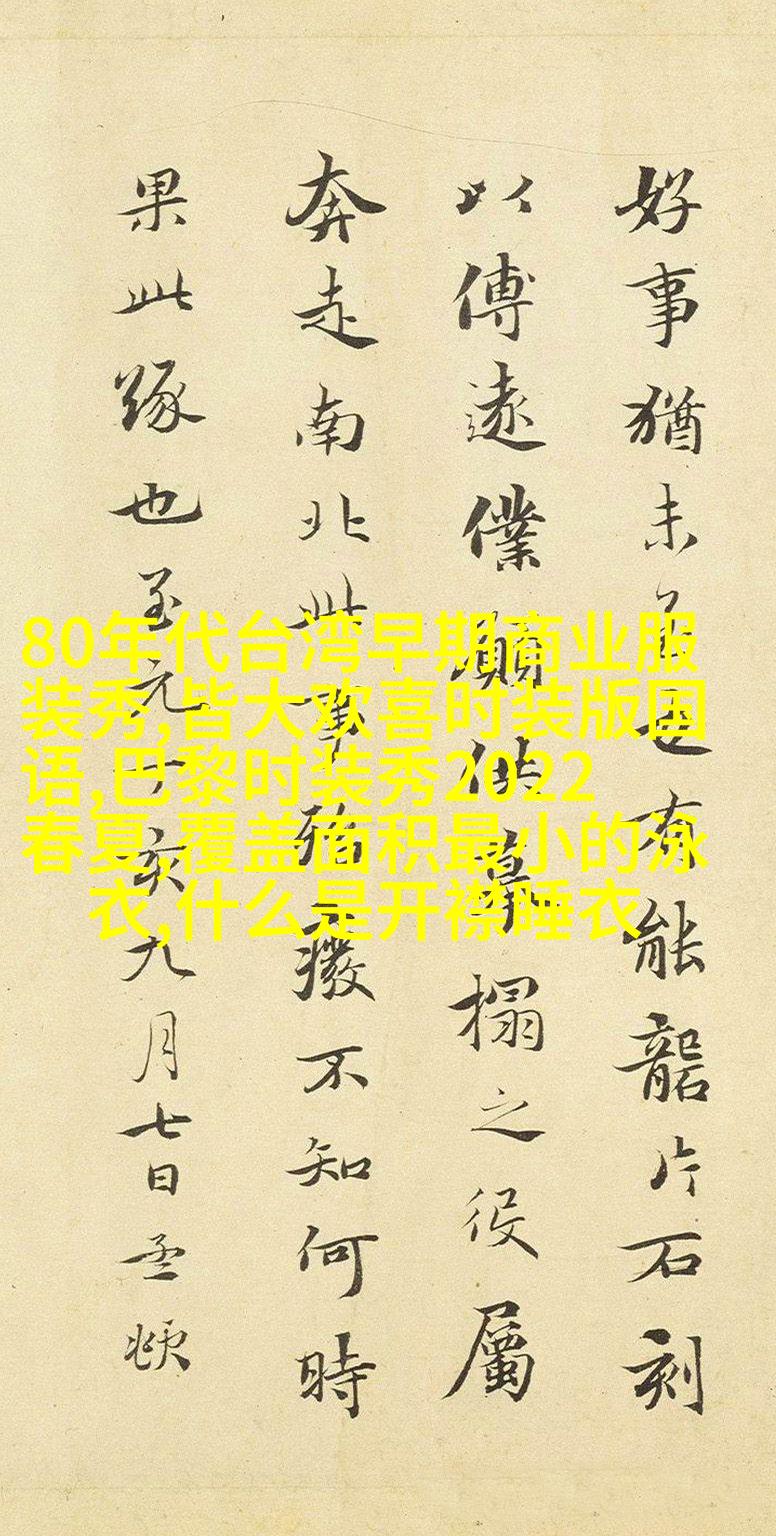 好事猶未也有能礱片石刻
以傳遠僕願供摹搨之役屬
奔走南北此事殆廢不知何時
果此緣也至元丁亥九月七日孟頫
80年代台湾早期商业服
装秀,皆大欢喜时装版国
语,巴黎时装秀2022
春夏,覆盖面积最小的泳
衣,什么是开襟睡衣